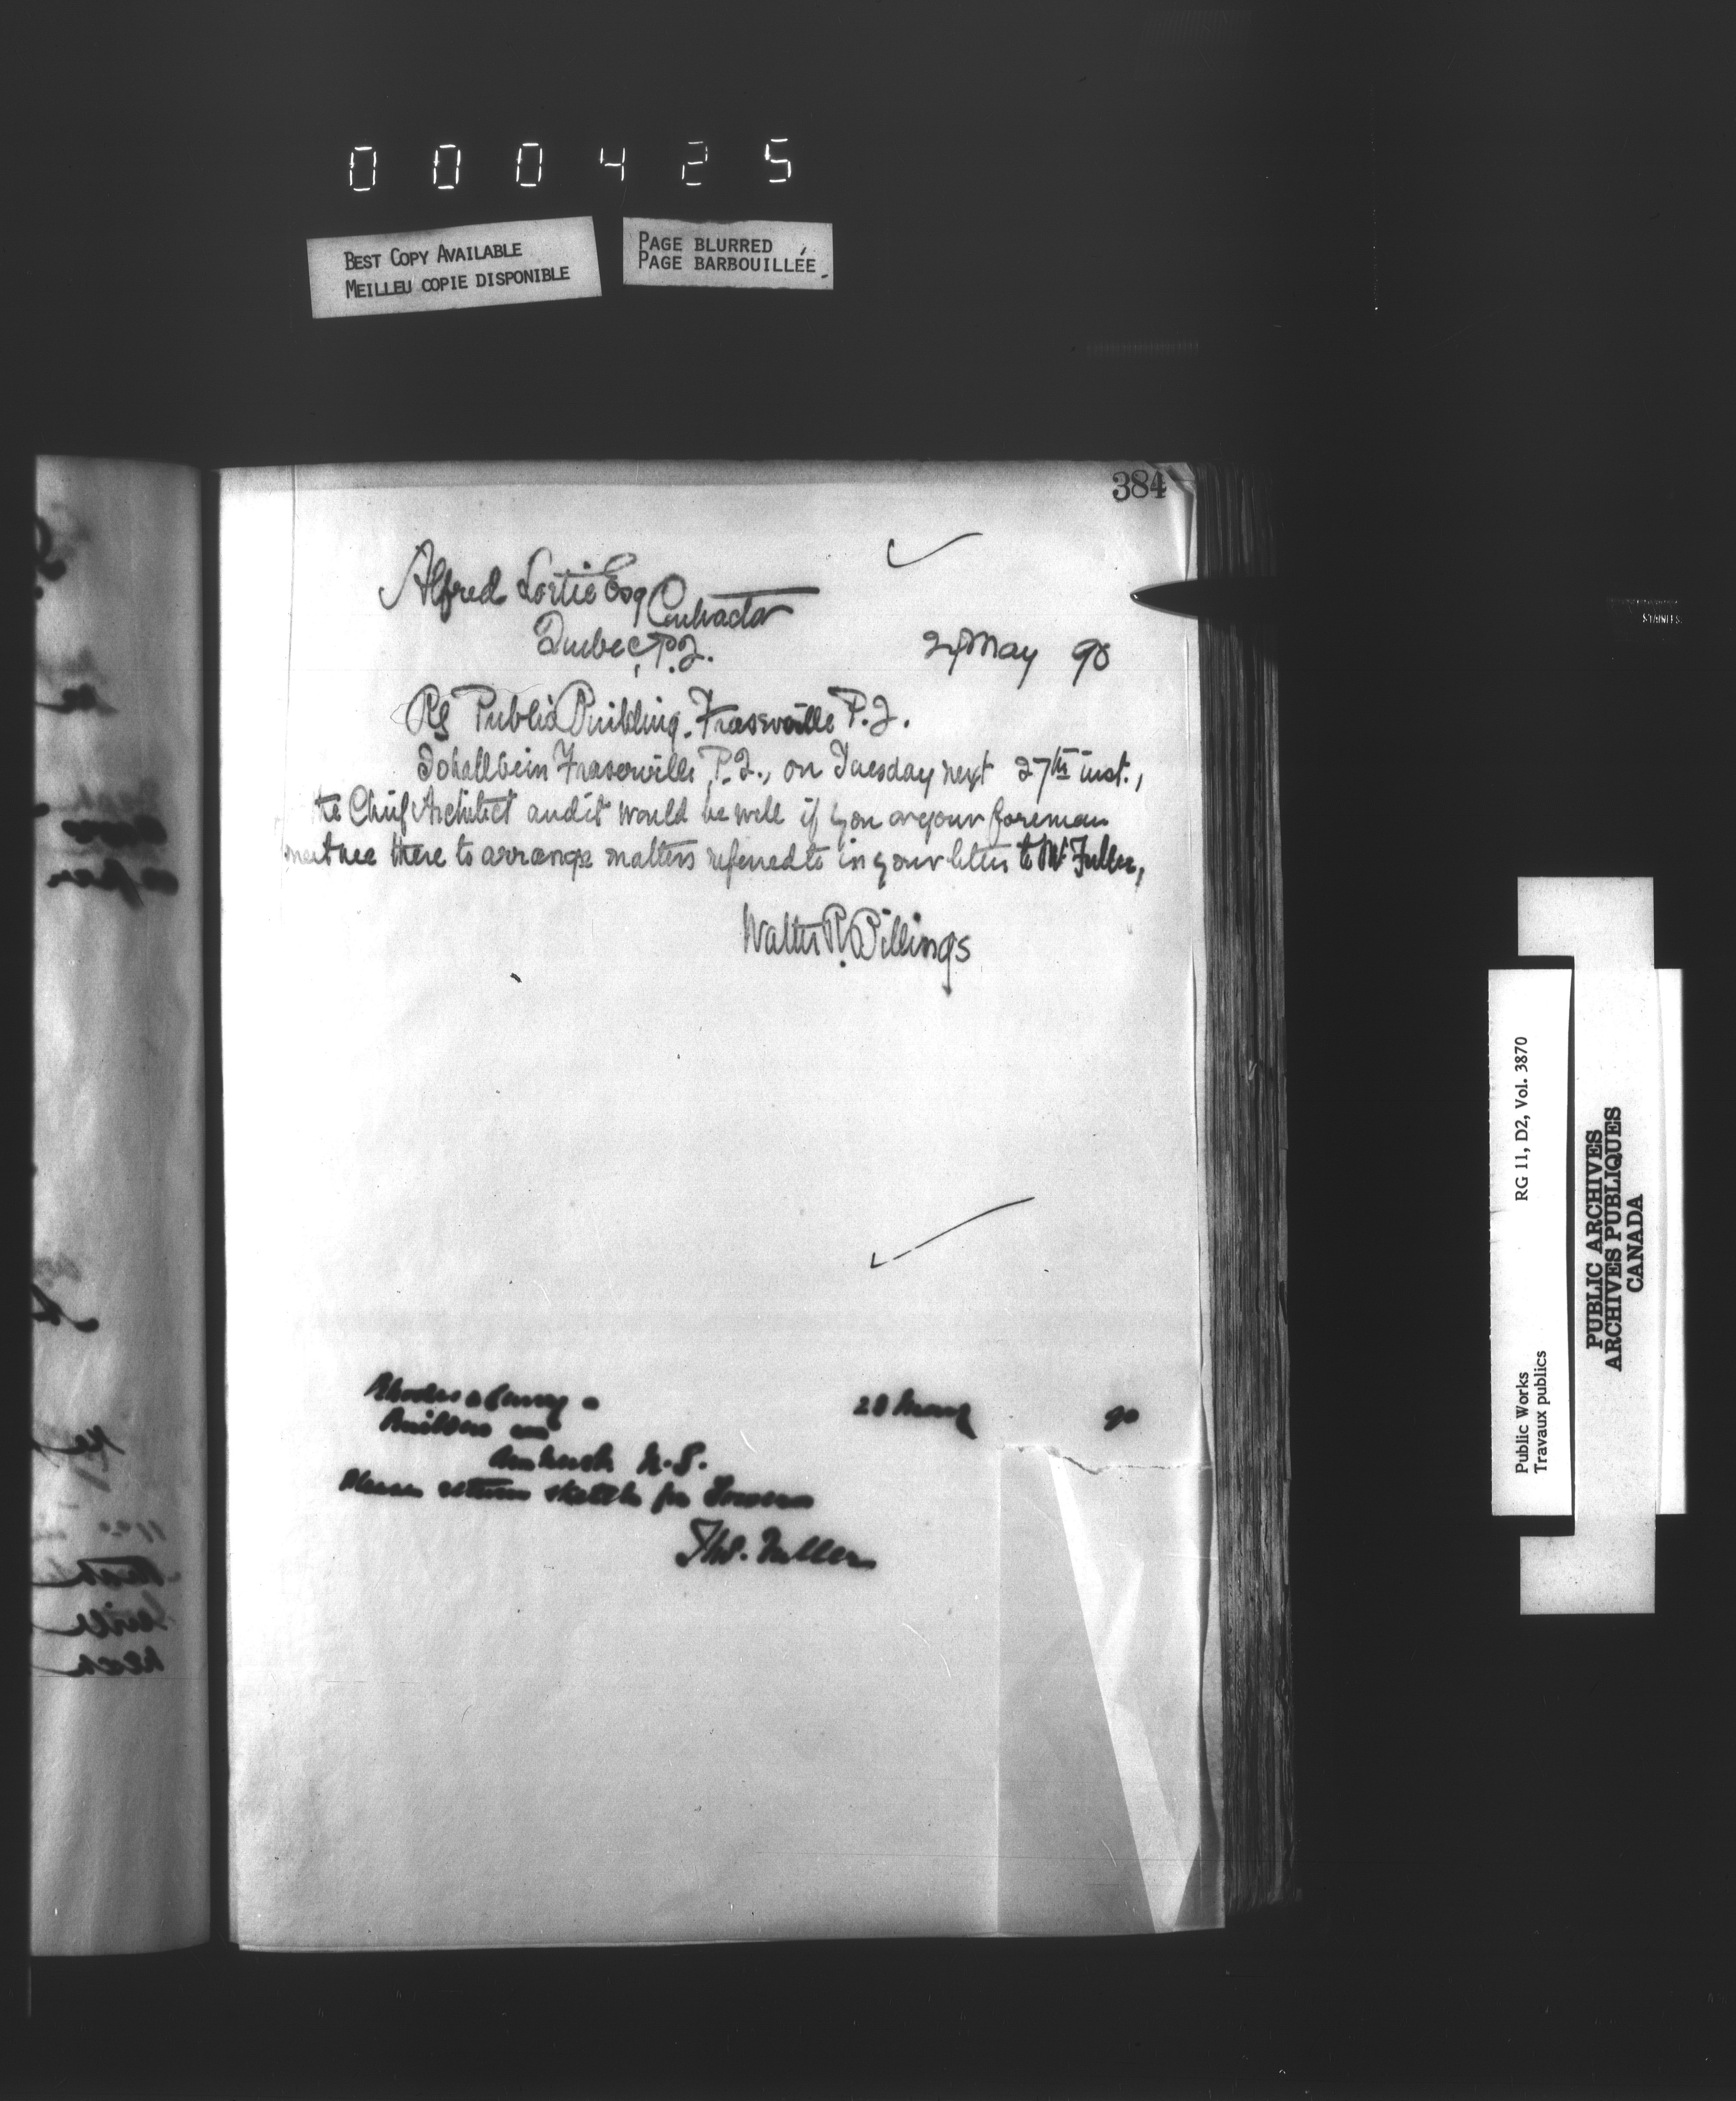 000425
BEST COPY AVAILABLE
MEILLEU COPIE DISPONIBLE
PAGE BLURRED
PAGE BARBOUILLÉE
384
Alfred Lortie Esq Contractor
Quebec, P.Q.
May 90
Re Public Building. Fraserville P.Q.
I shall be in Fraserville P.Q., on Tuesday next 27th inst.,
the Chief Architect and it would be well if you or your foreman
meet me there to arrange matters referred to in your letter to Mr Fuller,
Walter R. Billings
Rhodes Curry
28 May 90
Builders
Amherst N.S.
Please return sketch for
Thos. Fuller
Public Works
Travaux publics
RG 11, D2, Vol. 3870
PUBLIC ARCHIVES
ARCHIVES PUBLIQUES
CANADA